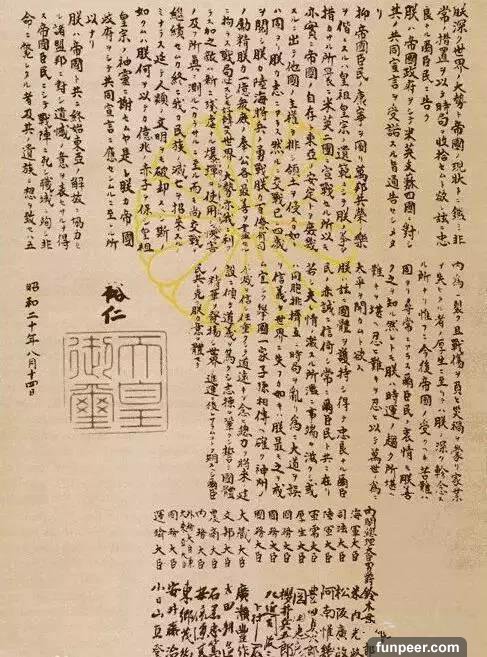 朕深ク世界ノ大勢ト帝國ノ現状トニ鑑ミ非
常ノ措置ヲ以テ時局ヲ收拾セムト欲シ茲ニ忠
良ナル爾臣民ニ告ク
朕ハ帝國政府ヲシテ米英支蘇四國ニ對シ
其ノ共同宣言ヲ受諾スル旨通告セシメタリ
抑帝國臣民ノ康寧ヲ圖リ萬邦共榮ノ樂
ヲ偕ニスルハ皇祖皇宗ノ遺範ニシテ朕ノ拳々
措カサル所曩ニ米英二國ニ宣戰セル所以モ
亦實ニ帝國ノ自存ト東亞ノ安定トヲ庶幾
スルニ出テ他國ノ主權ヲ排シ領土ヲ侵スカ如キ
ハ固ヨリ朕カ志ニアラス然ルニ交戰已ニ四歳
ヲ閲シ朕カ陸海將兵ノ勇戰朕カ百僚有司
ノ勵精朕カ一億衆庶ノ奉公各最善ヲ盡セル
ニ拘ラス戰局必スシモ好轉セス世界ノ大勢亦我ニ利
アラス加之敵ハ新ニ殘虐ナル爆彈ヲ使用シテ 慘害
ノ及フ所眞ニ測ルヘカラサルニ至ル而モ尚交戰ヲ
繼續セムカ終ニ我カ民族ノ滅亡ヲ招來スル
ノミナラス延テ人類ノ文明ヲモ破却スヘシ斯ノ
如クムハ朕何ヲ以テカ億兆ノ赤子ヲ保シ皇祖
皇宗ノ神靈ニ謝セムヤ是レ朕カ帝國
政府ヲシテ共同宣言ニ應セシムルニ至レル所
以ナリ
朕ハ帝國ト共ニ終始東亞ノ解放ニ協力セ
ル諸盟邦ニ對シ遺憾ノ意ヲ表セサルヲ得
ス帝國臣民ニシテ戰陣ニ死シ職域ニ殉シ非
命ニ斃レタル者及其ノ遺族ニ想ヲ致セハ五
内為ニ裂ク且戰傷ヲ負ヒ災禍ヲ蒙リ家業
ヲ失ヒタル者ノ厚生ニ至リテハ朕ノ深ク軫念ス
ル所ナリ惟フニ今後帝國ノ受クヘキ苦難ハ
固ヨリ尋常ニアラス爾臣民ノ衷情モ朕善
ク之ヲ知ル然レトモ朕ハ時運ノ趨ク所堪ヘ
難キヲ堪ヘ忍ヒ難キヲ忍ヒ以テ萬世ノ為ニ
太平ヲ開カムト欲ス
朕ハ茲ニ國體ヲ護持シ得テ忠良ナル爾臣
民ノ赤誠ニ信倚シ常ニ爾臣民ト共ニ在リ
若シ夫レ情ノ激スル所濫ニ事端ヲ滋クシ或
ハ同胞排擠互ニ時局ヲ亂リ為ニ大道ヲ誤
リ信義ヲ世界ニ失フカ如キハ朕最モ之ヲ戒
ム宜シク擧國一家子孫相傳ヘ確ク神州ノ
不滅ヲ信シ任重クシテ道遠キヲ念ヒ總力ヲ將來ノ建
設ニ傾ケ道義ヲ篤クシ志操ヲ鞏クシ誓テ國體
ノ精華ヲ發揚シ世界ノ進運ニ後レサラムコトヲ期スヘシ爾臣
民其レ克ク朕カ意ヲ體セヨ
裕仁
天皇御璽
昭和二十年八月十四日
内閣總理大臣男爵鈴木貫太郎
海軍大臣 米内光政
司法大臣 松阪廣政
陸軍大臣 阿南惟幾
軍需大臣 豊田貞次郎
厚生大臣 岡田忠彦
國務大臣 櫻井兵五郎
國務大臣
國務大臣 下村宏
大藏大臣 廣瀬豊作
文部大臣 太田耕造
農商大臣 石黒忠篤
内務大臣 安倍源基
外務大臣兼大東亞大臣 東郷茂德
國務大臣 安井藤治
運輸大臣 小日山直登
funpeer.com